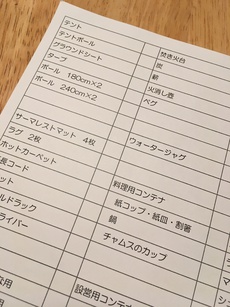 テント
テントポール
グラウンドシート
タープ
ポール 180cm×2
ポール 240cm×2
サーマレストマット 4枚
ラグ 2枚
ホットカーペット
長コード
ット
ルドラック
ライバー
焚き火台
炭
薪
火消し壺
ペグ
ウォータージャグ
料理用コンテナ
紙コップ・紙皿・割箸
鍋
チャムスのカップ
設営用コンテ